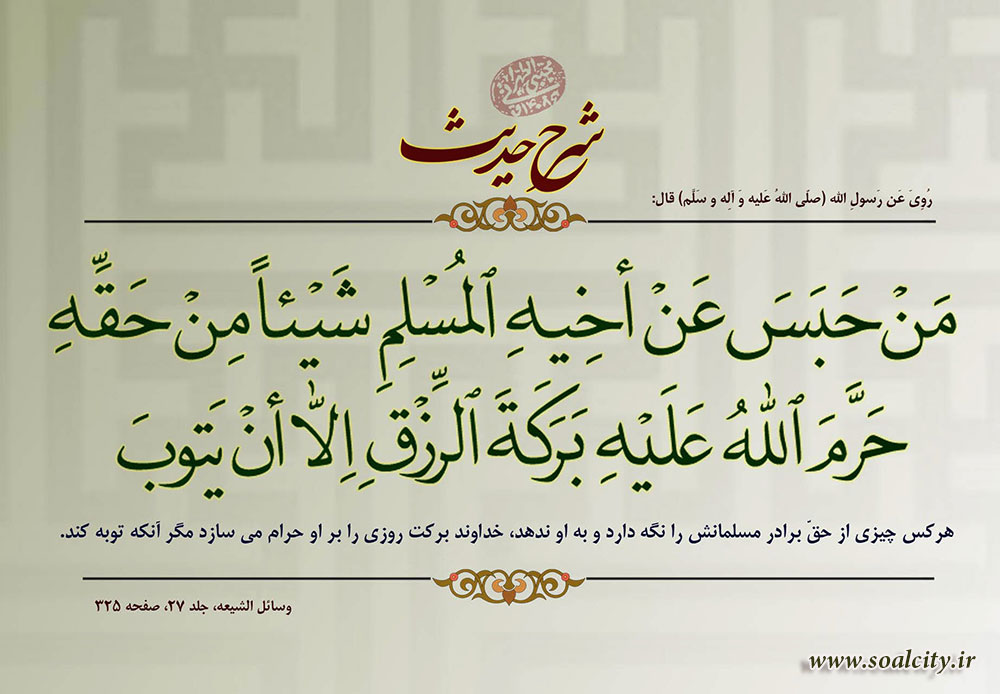 شرح حدیث
رُوِیَ عَن رَسولِ الله (صلّی اللهُ عَلیه وَ آلِه و سَلَّم) قال:
مَنْ حَبَسَ عَنْ أخِیهِ ٱلمُسْلِمِ شَیْئاً مِنْ حَقِّهِ
حَرَّمَ ٱللهُ عَلَیْهِ بَرَکَةَ ٱلرِّزْقِ إِلاّٰ أنْ یَتوبَ
هرکس چیزی از حقّ برادر مسلمانش را نگه دارد و به او ندهد، خداوند برکت روزی را بر او حرام می سازد مگر آنکه توبه کند.
وسائل الشیعه، جلد ۲۷، صفحه ۳۲۵
www.soalcity.ir